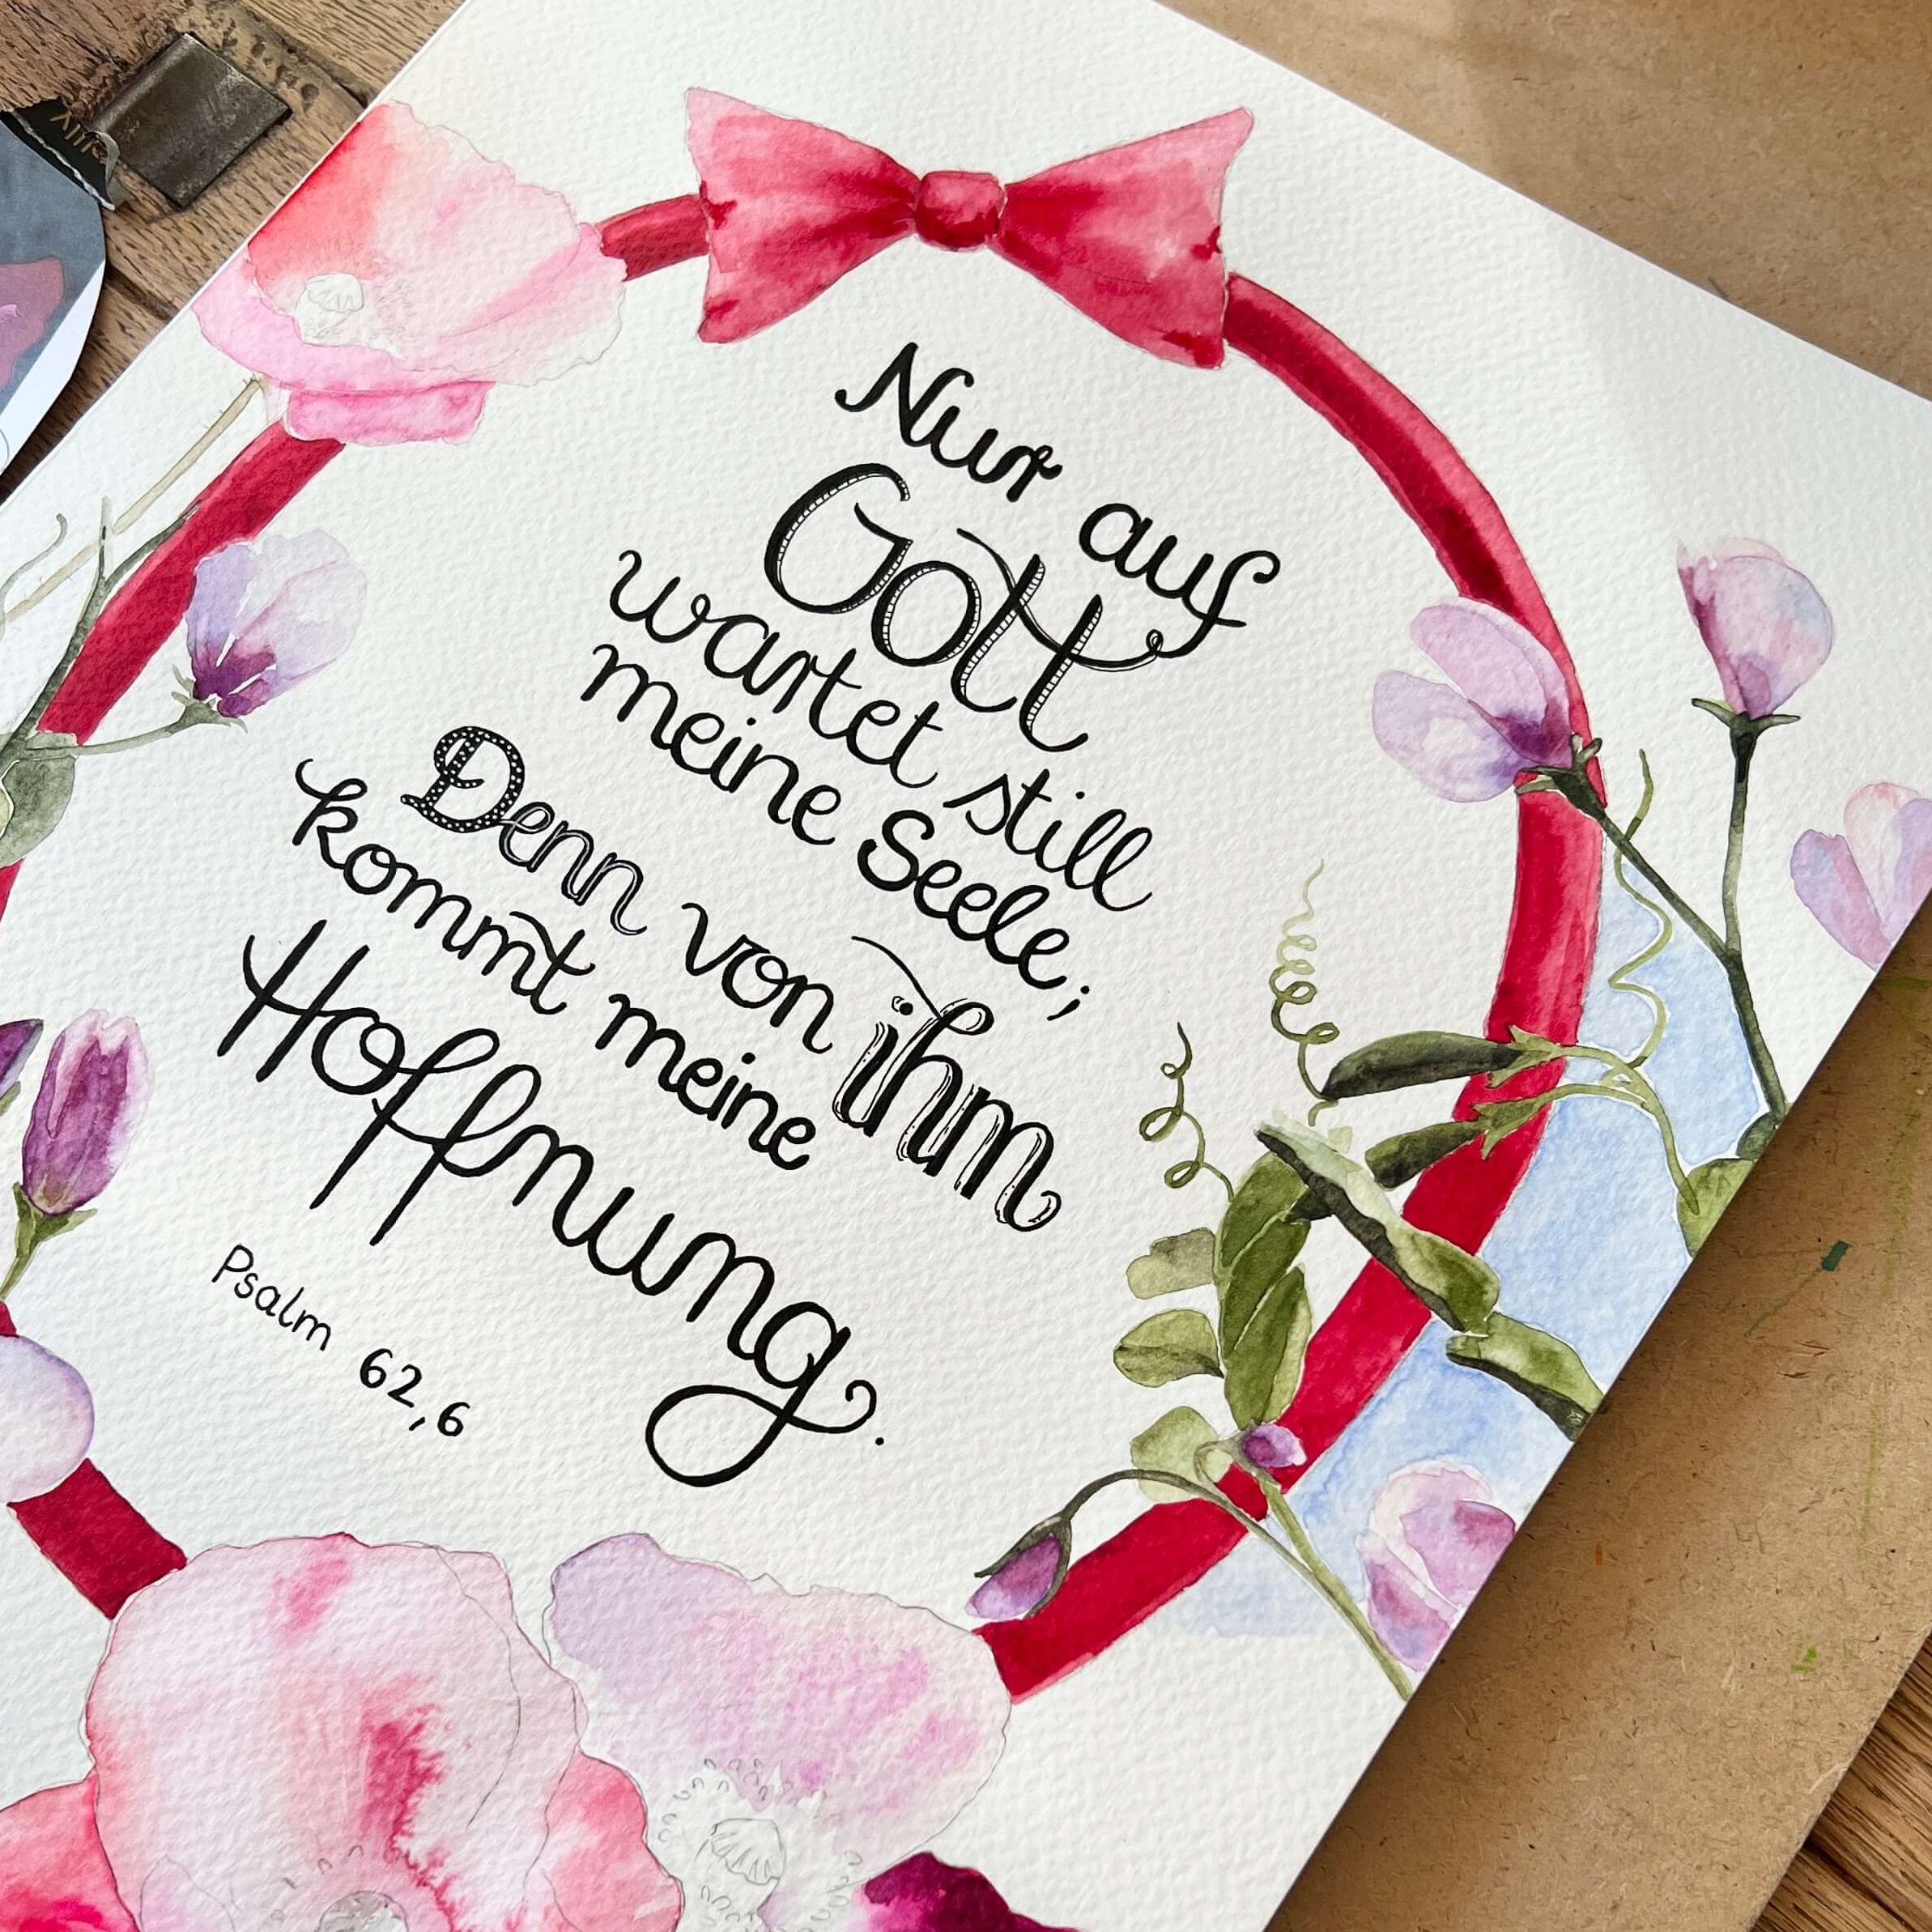 Nur auf
Gott
wartet still
meine Seele;
Denn von ihm
kommt meine
Hoffnung.
Psalm 62,6